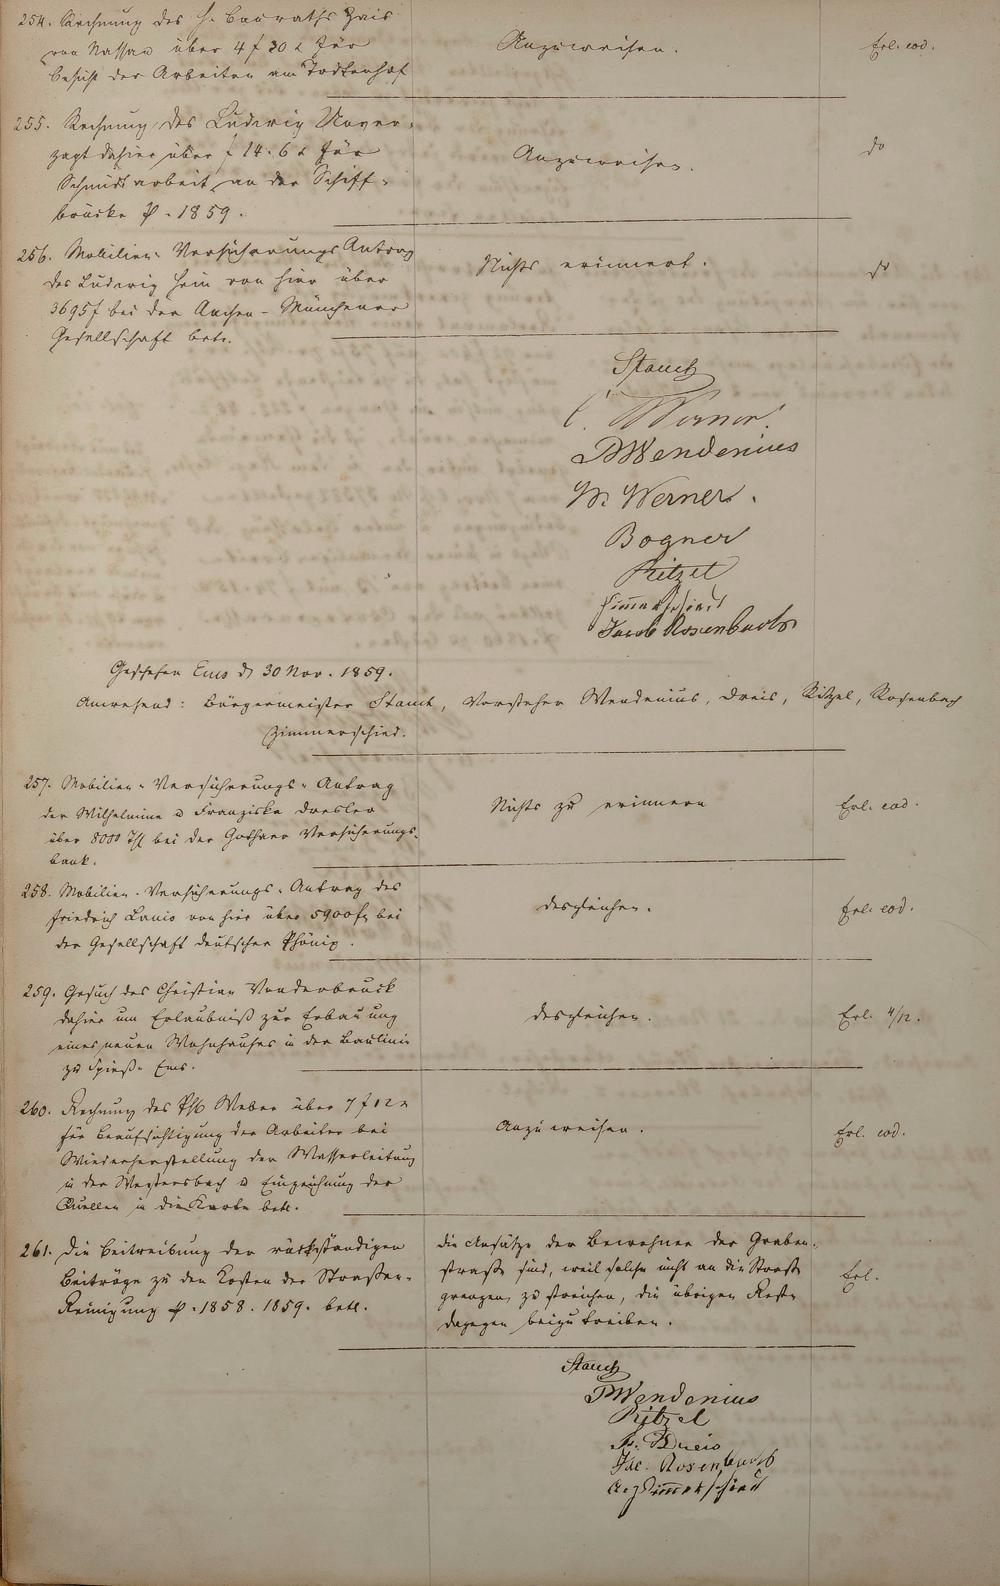 254. Rechnung des H. Bauraths Zais
von Nassau über 4 f 30 x für
Besicht der Arbeiten am
Anzuweisen.
Erl. eod.
255. Rechnung des Ludwig Unver-
zagt dahier über f 14. 6 x für
Schmidtarbeit an der Schiff-
brücke p. 1859.
Anzuweisen.
do
256. Mobilien-Versicherungs Antrag
des Ludwig Heim von hier über
3695 f bei der Aachen-Münchener
Gesellschaft betr.
Nichts erinnert.
do
Stauch
C. Werner.
Wendenius
W. Werner.
Bogner
Ritzel
Zimmerschied
Jacob Rosenbach
Geschehen Ems d. 30 Nov. 1859.
Anwesend: Bürgermeister Stauch, Vorsteher Wendenius, Dreis, Ritzel, Rosenbach
Zimmerschied.
257. Mobilien-Versicherungs-Antrag
der Wilhelmine u Franziska Dresler
über 8000 bei der Gothaer Versicherungs-
bank.
Nichts zu erinnern
Erl. eod.
258. Mobilien-Versicherungs-Antrag des
Friedrich Lanio von hier über 5900 f bei
der Gesellschaft deutscher Phönix.
desgleichen.
Erl. eod.
259. Gesuch des Christian Vonderbruck
dahier um Erlaubniß zur Erbauung
eines neuen Wohnhauses in der Baulinie
zu Spieß-Ems.
desgleichen.
Erl. 4/12.
260. Rechnung des Weber über 7 f 12 x
für Beaufsichtigung der Arbeiter bei
Wiederherstellung der Wasserleitung
in der u Einzeichnung der
Quellen in die Karte betr.
Anzuweisen.
Erl. eod.
261. Die Beitreibung der rückständigen
Beiträge zu den Kosten der Straßen-
Reinigung p. 1858. 1859. betr.
die Ansätze der Bewohner der Graben-
straße sind, weil solche nicht an die Straße
grenzen, zu streichen, die übrigen Reste
dagegen beizutreiben.
Erl.
Stauch
Wendenius
Ritzel
Dreis
Jac. Rosenbach
Zimmerschied